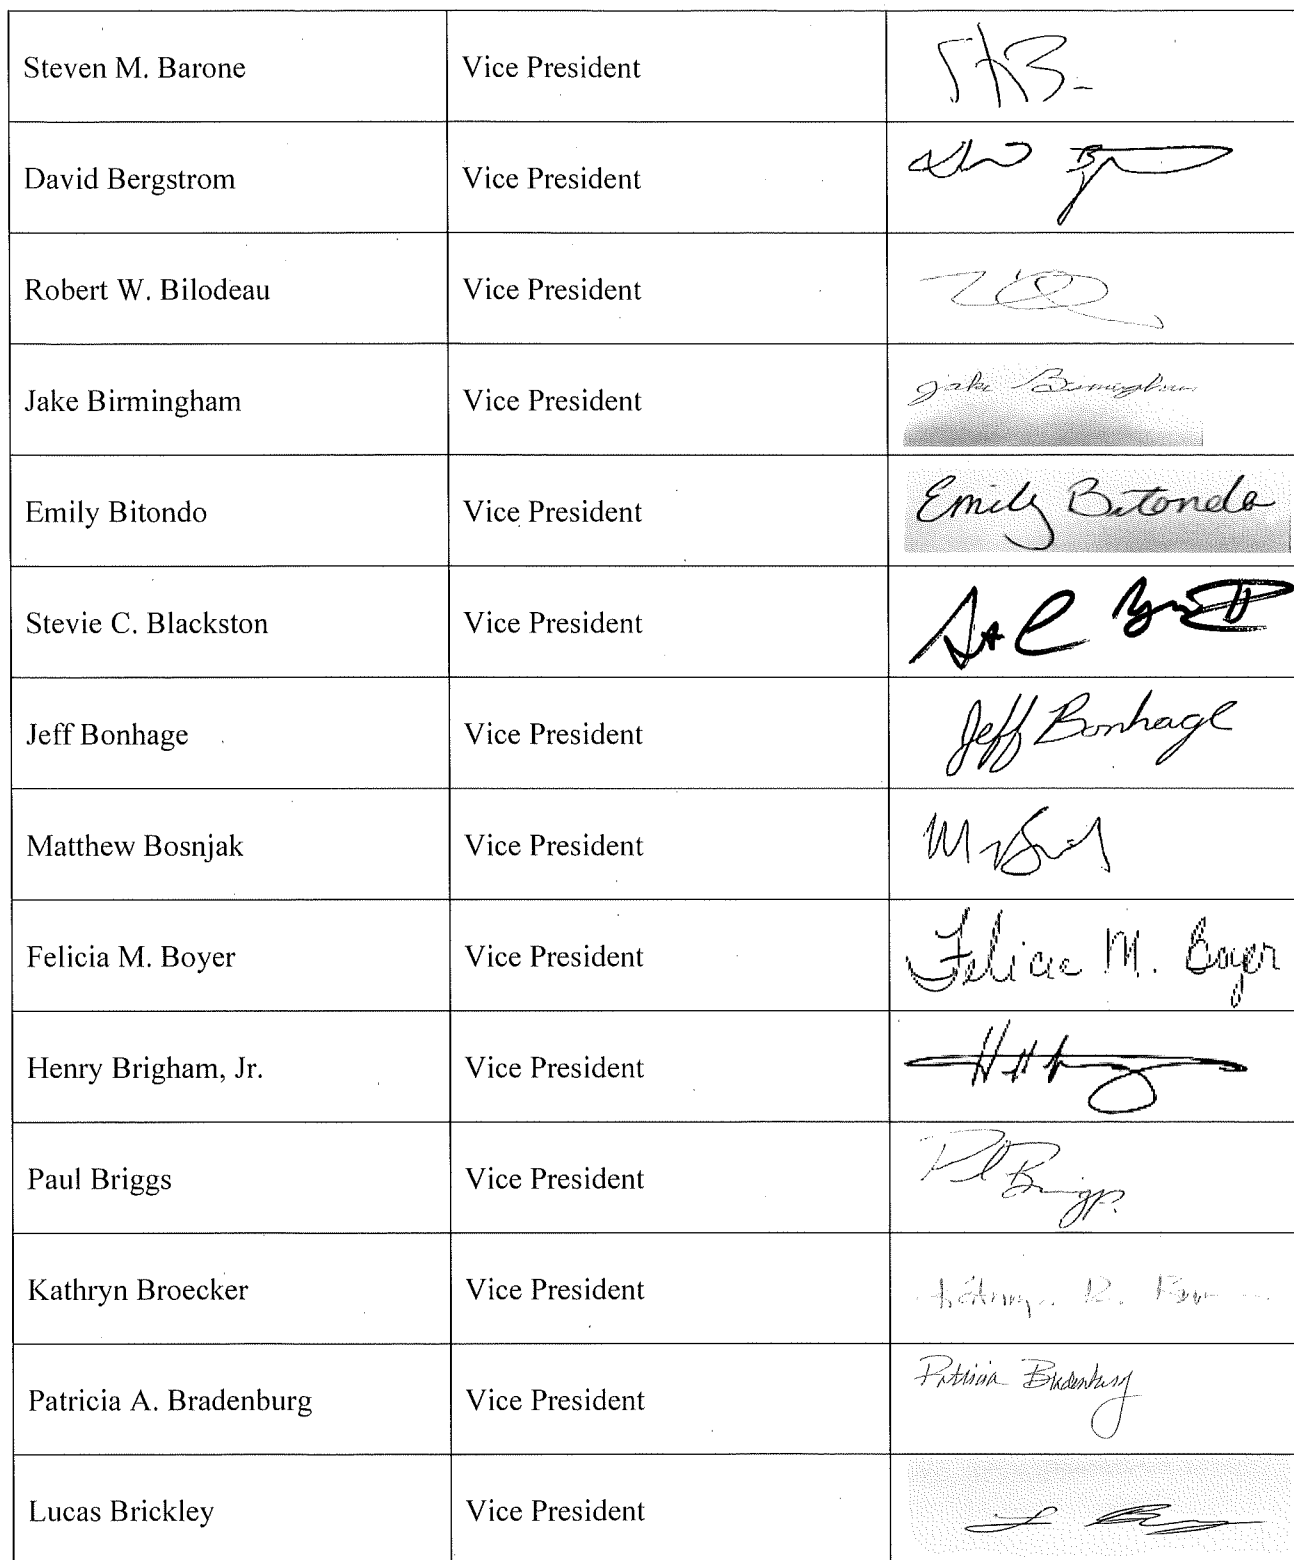 Steven M. Barone Vice President
David Bergstrom Vice President
Robert W. Bilodeau Vice President
Jake Birmingham Vice President Jake Birmingham
Emily Bitondo Vice President Emily Bitondo
Stevie C. Blackston Vice President
Jeff Bonhage Vice President Jeff Bonhage
Matthew Bosnjak Vice President
Felicia M. Boyer Vice President Felicia M. Boyer
Henry Brigham, Jr. Vice President
Paul Briggs Vice President Paul Briggs
Kathryn Broecker Vice President
Patricia A. Bradenburg Vice President Patricia Bradenburg
Lucas Brickley Vice President